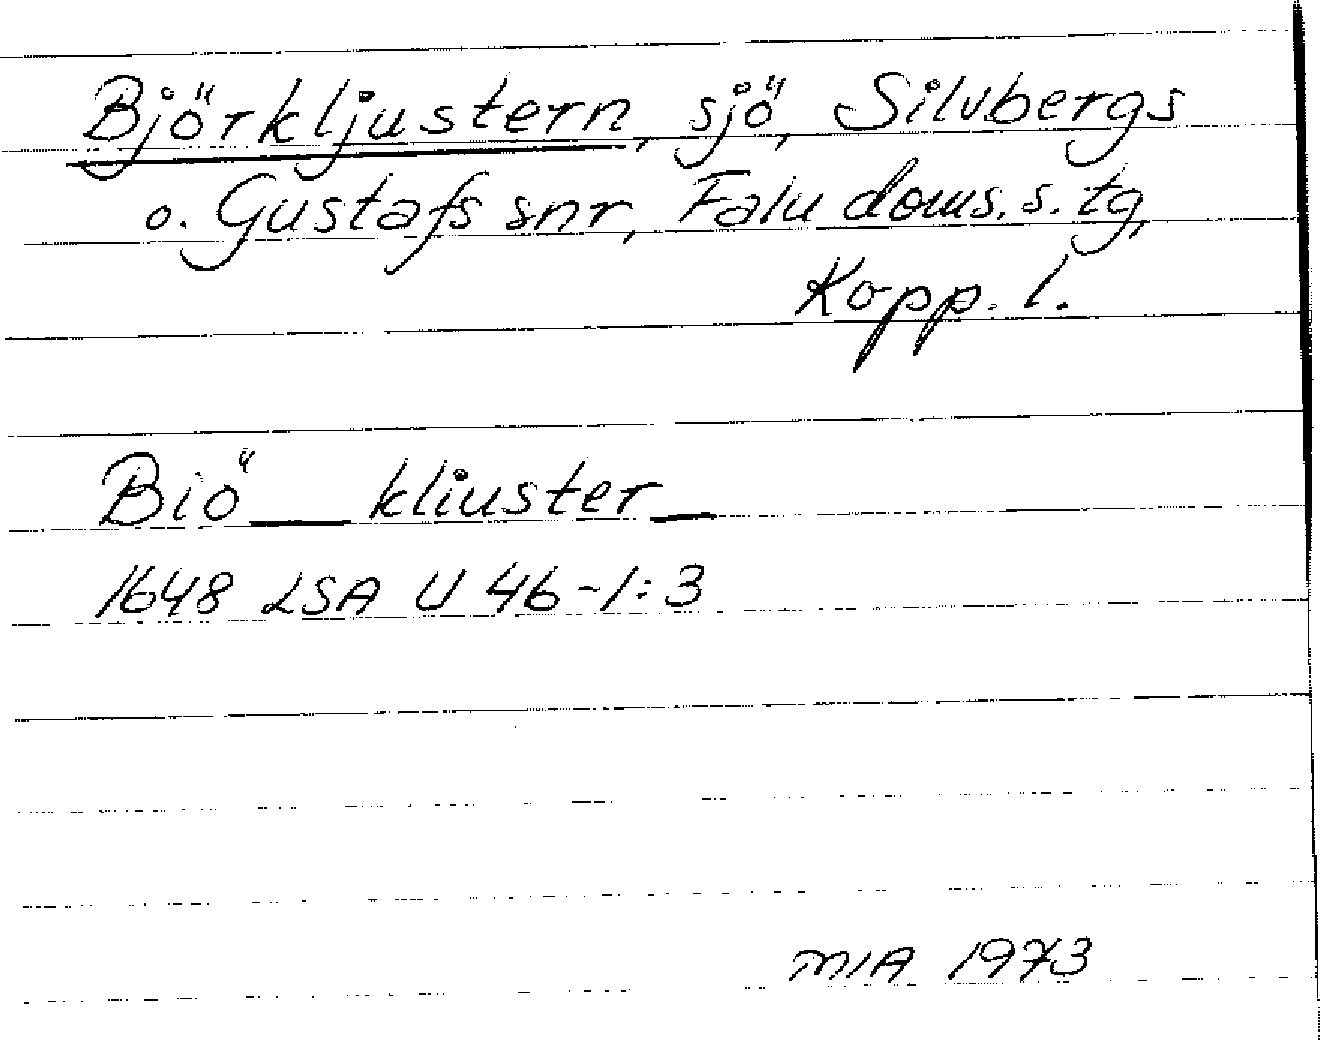 Björkljustern, sjö, Silvbergs
o. Gustafs snr, Falu doms. s. tg,
Kopp. l.
Biö__ kliuster_
1648 LSA U 46-1:3
MIA 1973